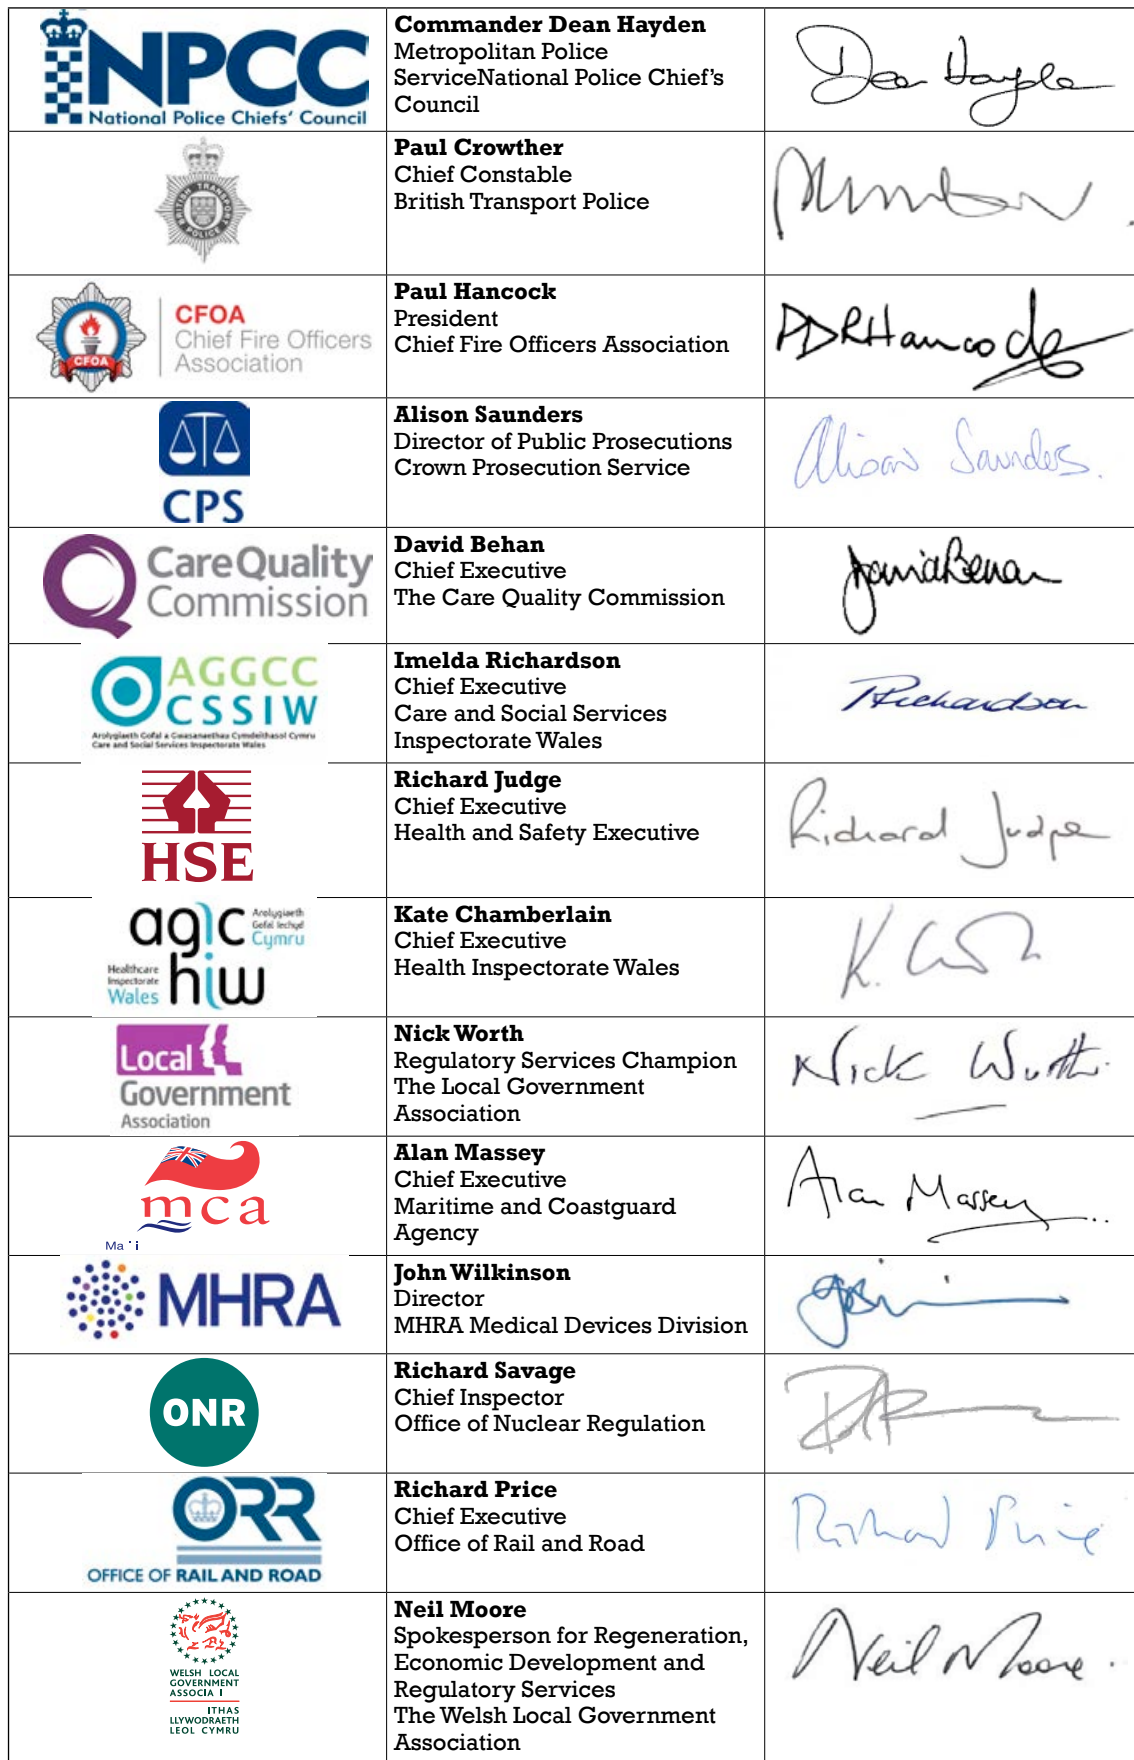 NPCC
National Police Chiefs' Council
Commander Dean Hayden
Metropolitan Police
ServiceNational Police Chief's
Council
BRITISH TRANSPORT POLICE
Paul Crowther
Chief Constable
British Transport Police
CFOA
CFOA
Chief Fire Officers
Association
Paul Hancock
President
Chief Fire Officers Association
PDRHancock
CPS
Alison Saunders
Director of Public Prosecutions
Crown Prosecution Service
Alison Saunders.
CareQuality
Commission
David Behan
Chief Executive
The Care Quality Commission
David Behan
AGGCC
CSSIW
Arolygiaeth Gofal a Gwasanaethau Cymdeithasol Cymru
Care and Social Services Inspectorate Wales
Imelda Richardson
Chief Executive
Care and Social Services
Inspectorate Wales
Richardson
HSE
Richard Judge
Chief Executive
Health and Safety Executive
Richard Judge
agic
Arolygiaeth
Gofal Iechyd
Cymru
Healthcare
Inspectorate
Wales
hiw
Kate Chamberlain
Chief Executive
Health Inspectorate Wales
Local
Government
Association
Nick Worth
Regulatory Services Champion
The Local Government
Association
Nick Worth
mca
Ma i
Alan Massey
Chief Executive
Maritime and Coastguard
Agency
Alan Massey
MHRA
John Wilkinson
Director
MHRA Medical Devices Division
ONR
Richard Savage
Chief Inspector
Office of Nuclear Regulation
ORR
OFFICE OF RAIL AND ROAD
Richard Price
Chief Executive
Office of Rail and Road
Richard Price
WELSH LOCAL
GOVERNMENT
ASSOCIA I
ITHAS
LLYWODRAETH
LEOL CYMRU
Neil Moore
Spokesperson for Regeneration,
Economic Development and
Regulatory Services
The Welsh Local Government
Association
Neil Moore.